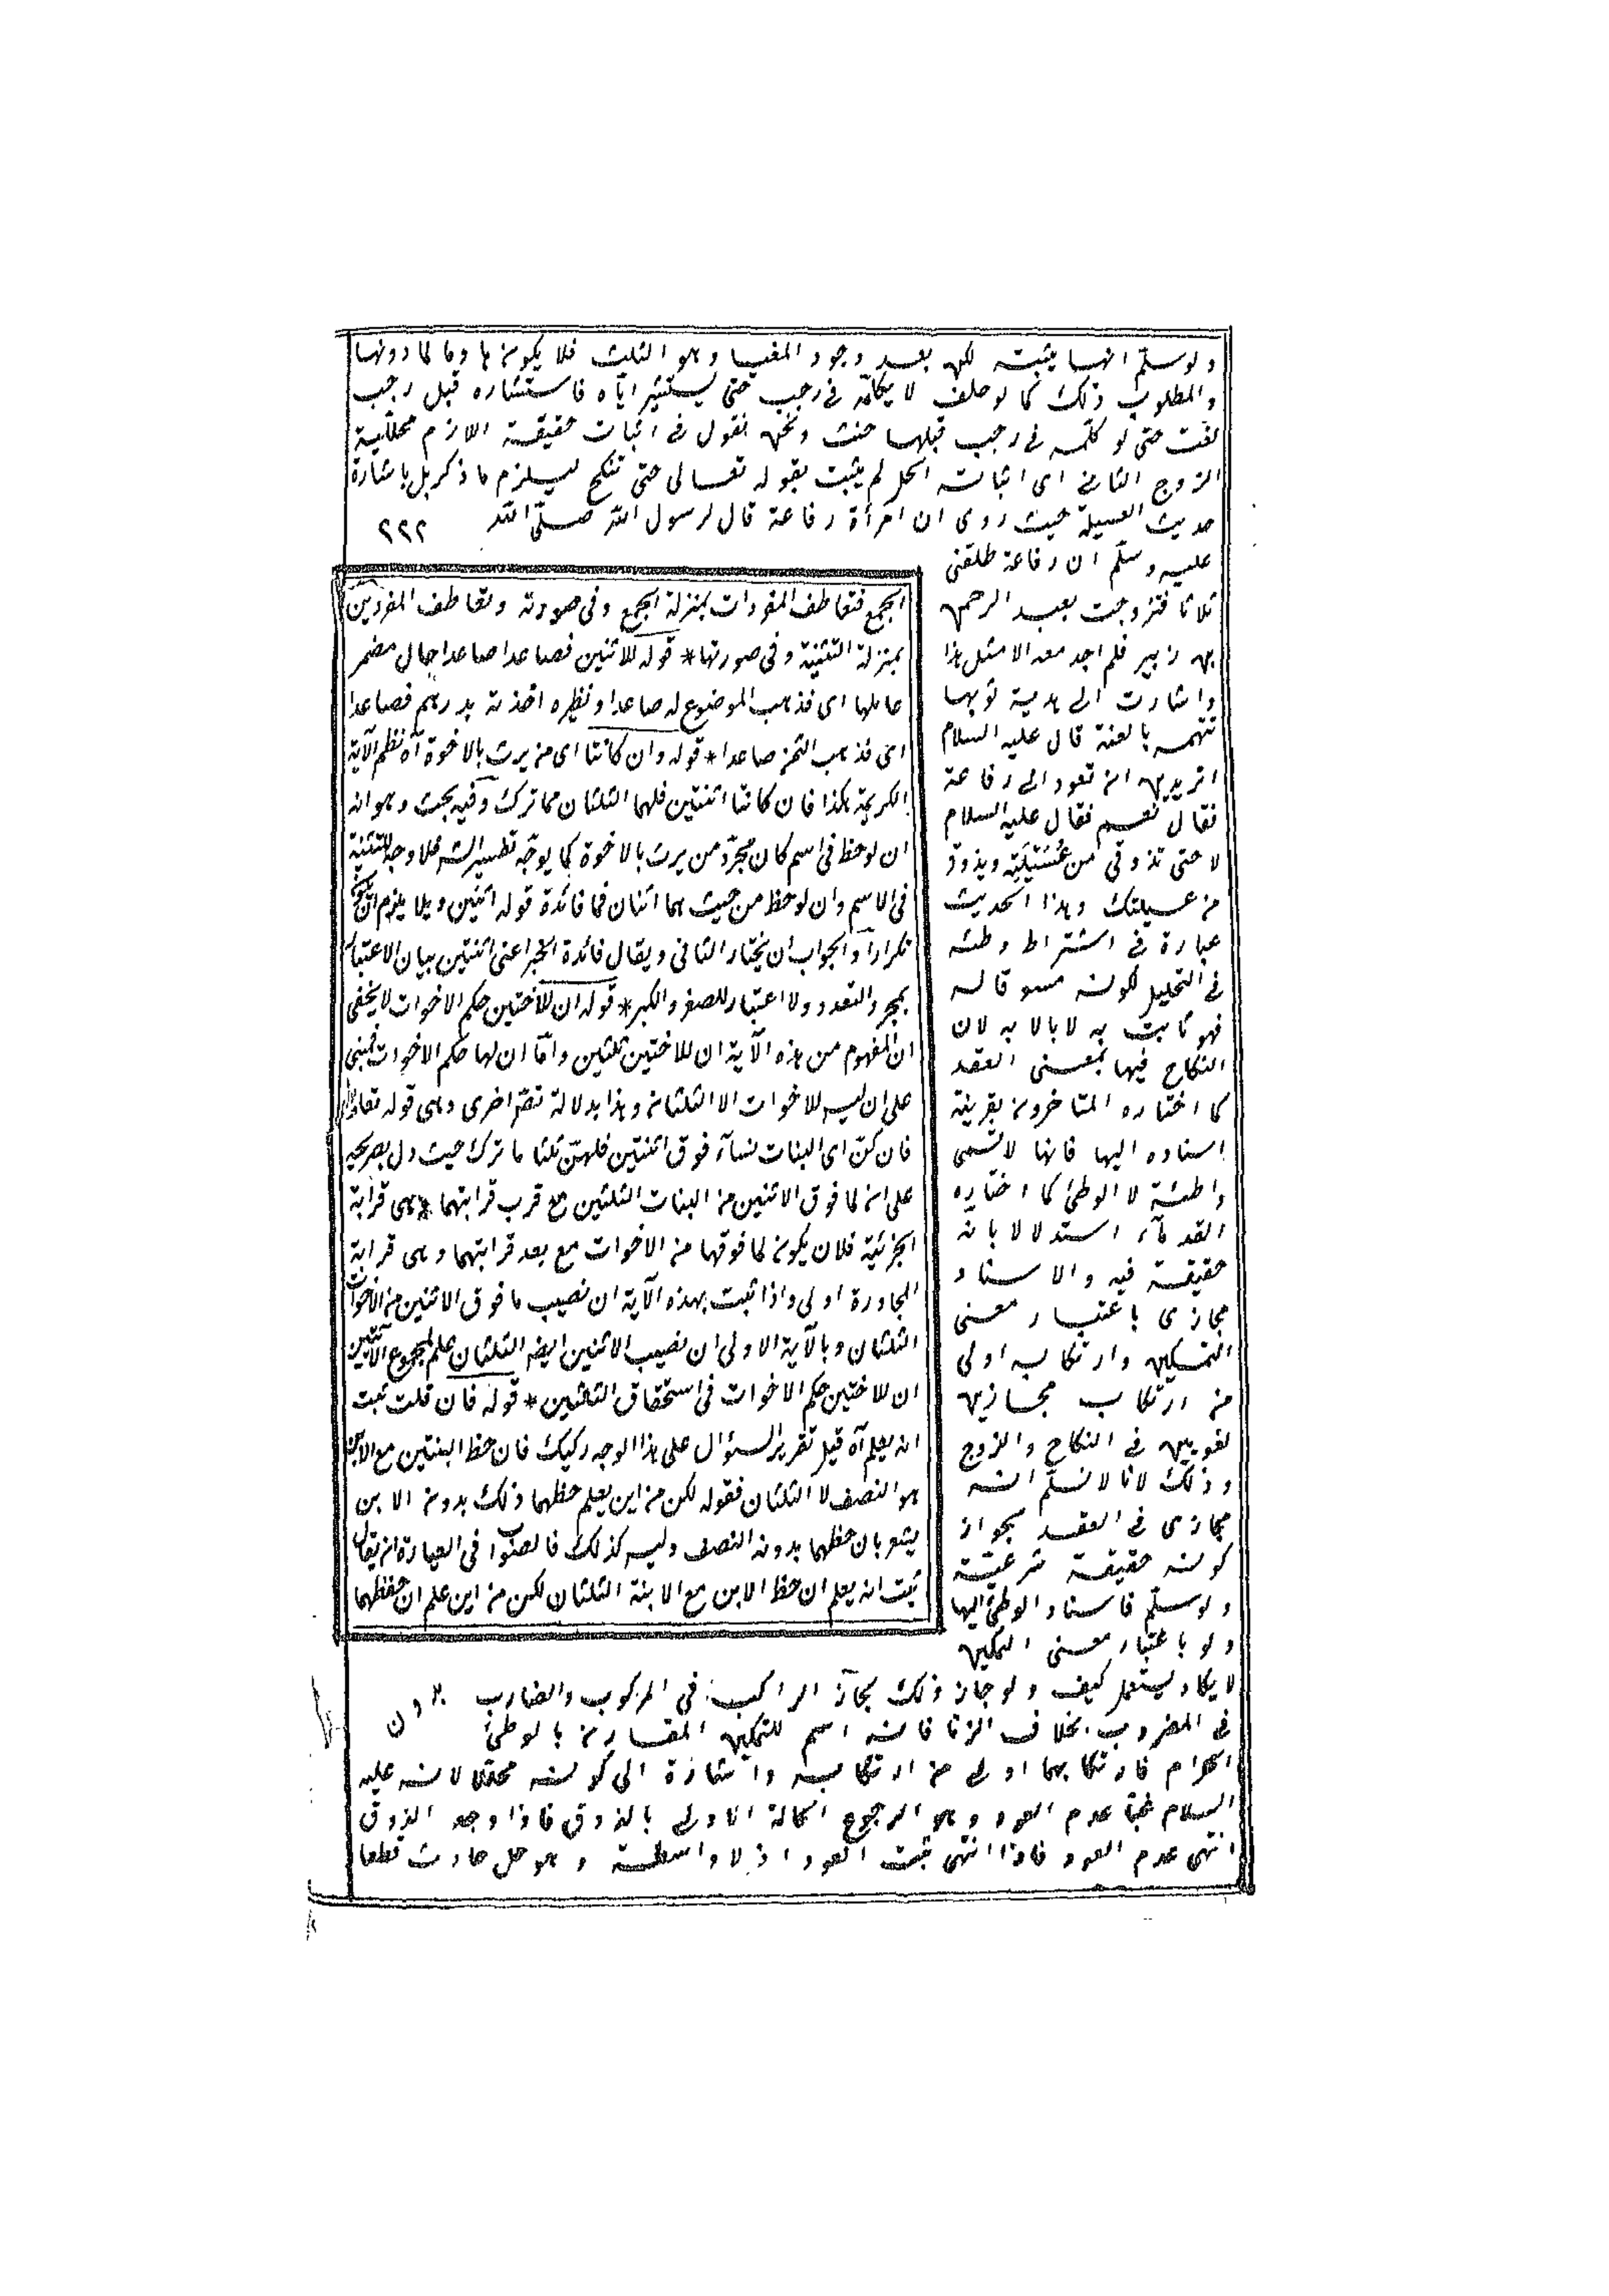 ولو سلّم انها يثبته لكن بعد وجود المغيا وهو الثلث فلا يكون هادما لما دونها
والمطلوب ذلك كما لو حلف لا يكلّمه فى رجب حتى يستشير اياه فاستشاره قبل رجب
لغت حتى لو كلّمه فى رجب قبلها حنث ونحن نقول فى اثبات حقيقة اللازم محلّلية
الزوج الثانى اى اثباته الحل لم يثبت بقوله تعالى حتى تنكح ليلزم ما ذكر بل باشارة
حديث العسيلة حيث روى ان امرأة رفاعة قال لرسول الله صلّى الله
٢٢٢
عليه وسلّم ان رفاعة طلقنى
ثلاثا فتزوجت بعبد الرحمن
بن زبير فلم اجد معه الا مثل هذا
واشارت الى هدبة ثوبها
تتهمه بالعنة قال عليه السلام
اتريدين ان تعود الى رفاعة
فقال نعم فقال عليه السلام
لا حتى تذوقى من عُسَيْلَتِه ويذوق
من عسيلتك وهذا الحديث
عبارة فى اشتراط وطئه
فى التحليل لكونه مسوقا له
فهو ثابت به لا بالا به لان
النكاح فيها بمعنى العقد
كما اختاره المتاخرون بقرينة
اسناده اليها فانها لا تسمى
واطئة لا الوطئ كما اختاره
القدماء استدلالا بانه
حقيقة فيه والاسناد
مجازى باعتبار معنى
التمكين وارتكابه اولى
من ارتكاب مجازين
لغويين فى النكاح والزوج
وذلك لانا لا نسلّم انه
مجازى فى العقد لجواز
كونه حقيقة شرعيّة
ولو سلّم فاسناد الوطئ اليها
ولو باعتبار معنى التمكين
لا يكاد يستعمل كيف ولو جاز ذلك لجاز الراكب فى المركوب والضارب
فى المضروب بخلاف الزنا فانه اسم للتمكين المقارن بالوطئ
الحرام فارتكابهما اولى من ارتكابه واشارة الى كونه محلّلا لانه عليه
السلام غيّا عدم العود وهو الرجوع الحالة الاولى بالذوق فاذا وجد الذوق
انتهى عدم العود فاذا انتهى ثبت العود اذ لا واسطة وهو حل حادث قطعا
الجمع فتعاطف المفردات بمنزلة الجمع وفى صورته وتعاطف المفردين
بمنزلة التثنية وفى صورتها * قوله للاثنين فصاعدا صاعدا حال مضمر
عاملها اى فذهب الموضوع له صاعدا ونظيره اخذته بدرهم فصاعدا
اى فذهب الثمن صاعدا * قوله وان كانتا اى من يرث بالاخوة آه نظم الآية
الكريمة هكذا فان كانتا اثنتين فلهما الثلثان مما ترك وفيه بحث وهو انه
ان لوحظ فى اسم كان مجرّد من يرث بالاخوة كما يوجّه تفسير الشه فلا وجه للتثنية
فى الاسم وان لوحظ من حيث هما اثنان فما فائدة قوله اثنين
تكرارا والجواب ان يختار الثانى ويقال فائدة الخبر اعنى اثنتين بيان الاعتبار
بمجرد التعدد ولا اعتبار للصغر والكبر * قوله ان للاختين حكم الاخوات لا يخفى
ان المفهوم من هذه الآية ان للاختين ثلثين وامّا ان لها حكم الاخوات فمبنى
على ان ليس للاخوات الا الثلثان وهذا بدلالة نصّ اخرى وهى قوله تعالى
فان كنّ اى البنات نساء فوق اثنتين فلهنّ ثلثا ما ترك حيث دل بصريحه
على ان لما فوق الاثنين من البنات الثلثين مع قرب قرابتهما وهى قرابة
الجزئيّة فلان يكون لما فوقها من الاخوات مع بعد قرابتهما وهى قرابة
المجاورة اولى واذا ثبت بهذه الآية ان نصيب ما فوق الاثنين من الاخوات
الثلثان وبالآية الاولى ان نصيب الاثنين ايضه الثلثان علم لمجموع الآيتين
ان للاختين حكم الاخوات فى استحقاق الثلثين * قوله فان قلت ثبت
انه يعلم آه قيل تقرير السؤال على هذا الوجه ركيك فان حظ البنتين مع الابن
هو النصف لا الثلثان فقوله لكن من اين يعلم حظهما ذلك بدون الابن
يشعر بان حظهما بدونه النصف وليس كذلك فالصواب فى العبارة ان يقال
ثبت انه يعلم ان حظ الابن مع الابنة الثلثان لكن من اين علم ان حظهما
بدون